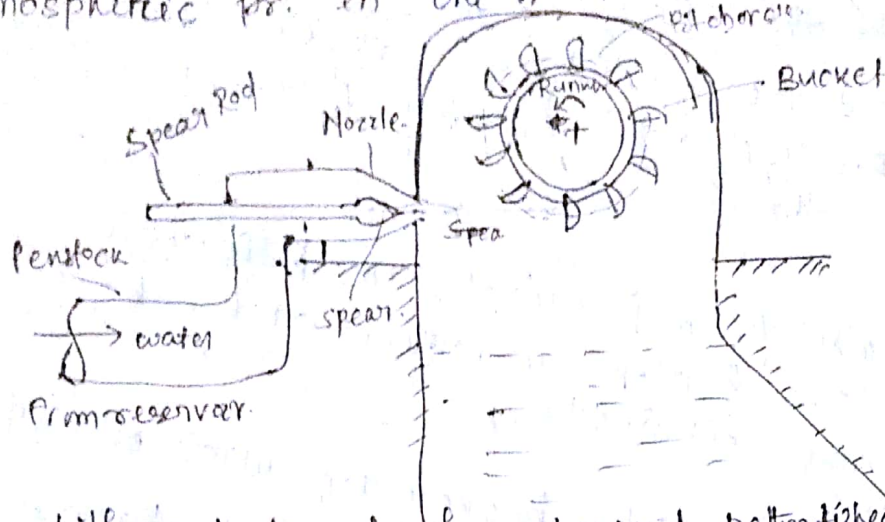 pr. in the
Pitchcircle
Bucket
Runner
Spear Rod
Nozzle
Spea
Penstock
spear
water
From reservar.